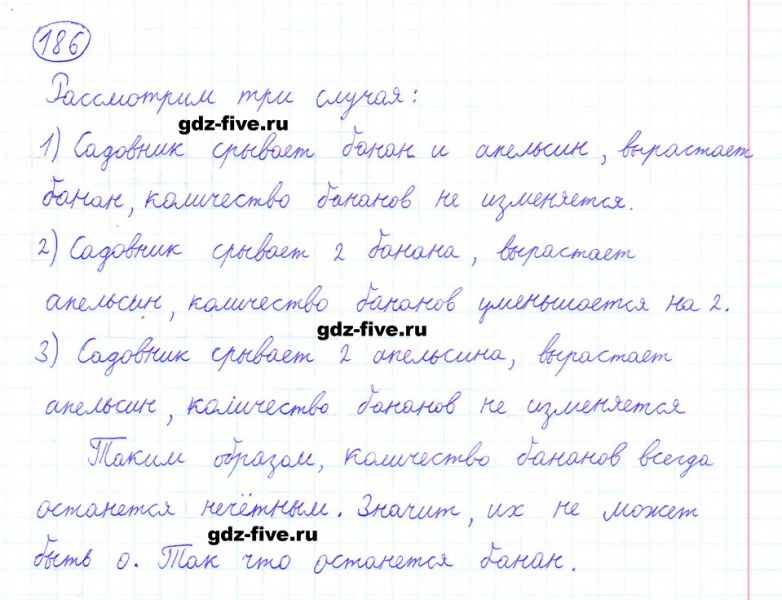 186
Рассмотрим три случая:
gdz-five.ru
1) Садовник срывает банан и апельсин, вырастает
банан, количество бананов не изменяется.
2) Садовник срывает 2 банана, вырастает
апельсын, количество бананов уменьшается на 2.
gdz-five.ru
3) Садовник срывает 2 апельсина, вырастает
апельсин, количество бананов не изменяется
Таким образом, количество бананов всегда
останется нечётным. Значит, их не может
gdz-five.ru
быть 0. Так что останется банан.